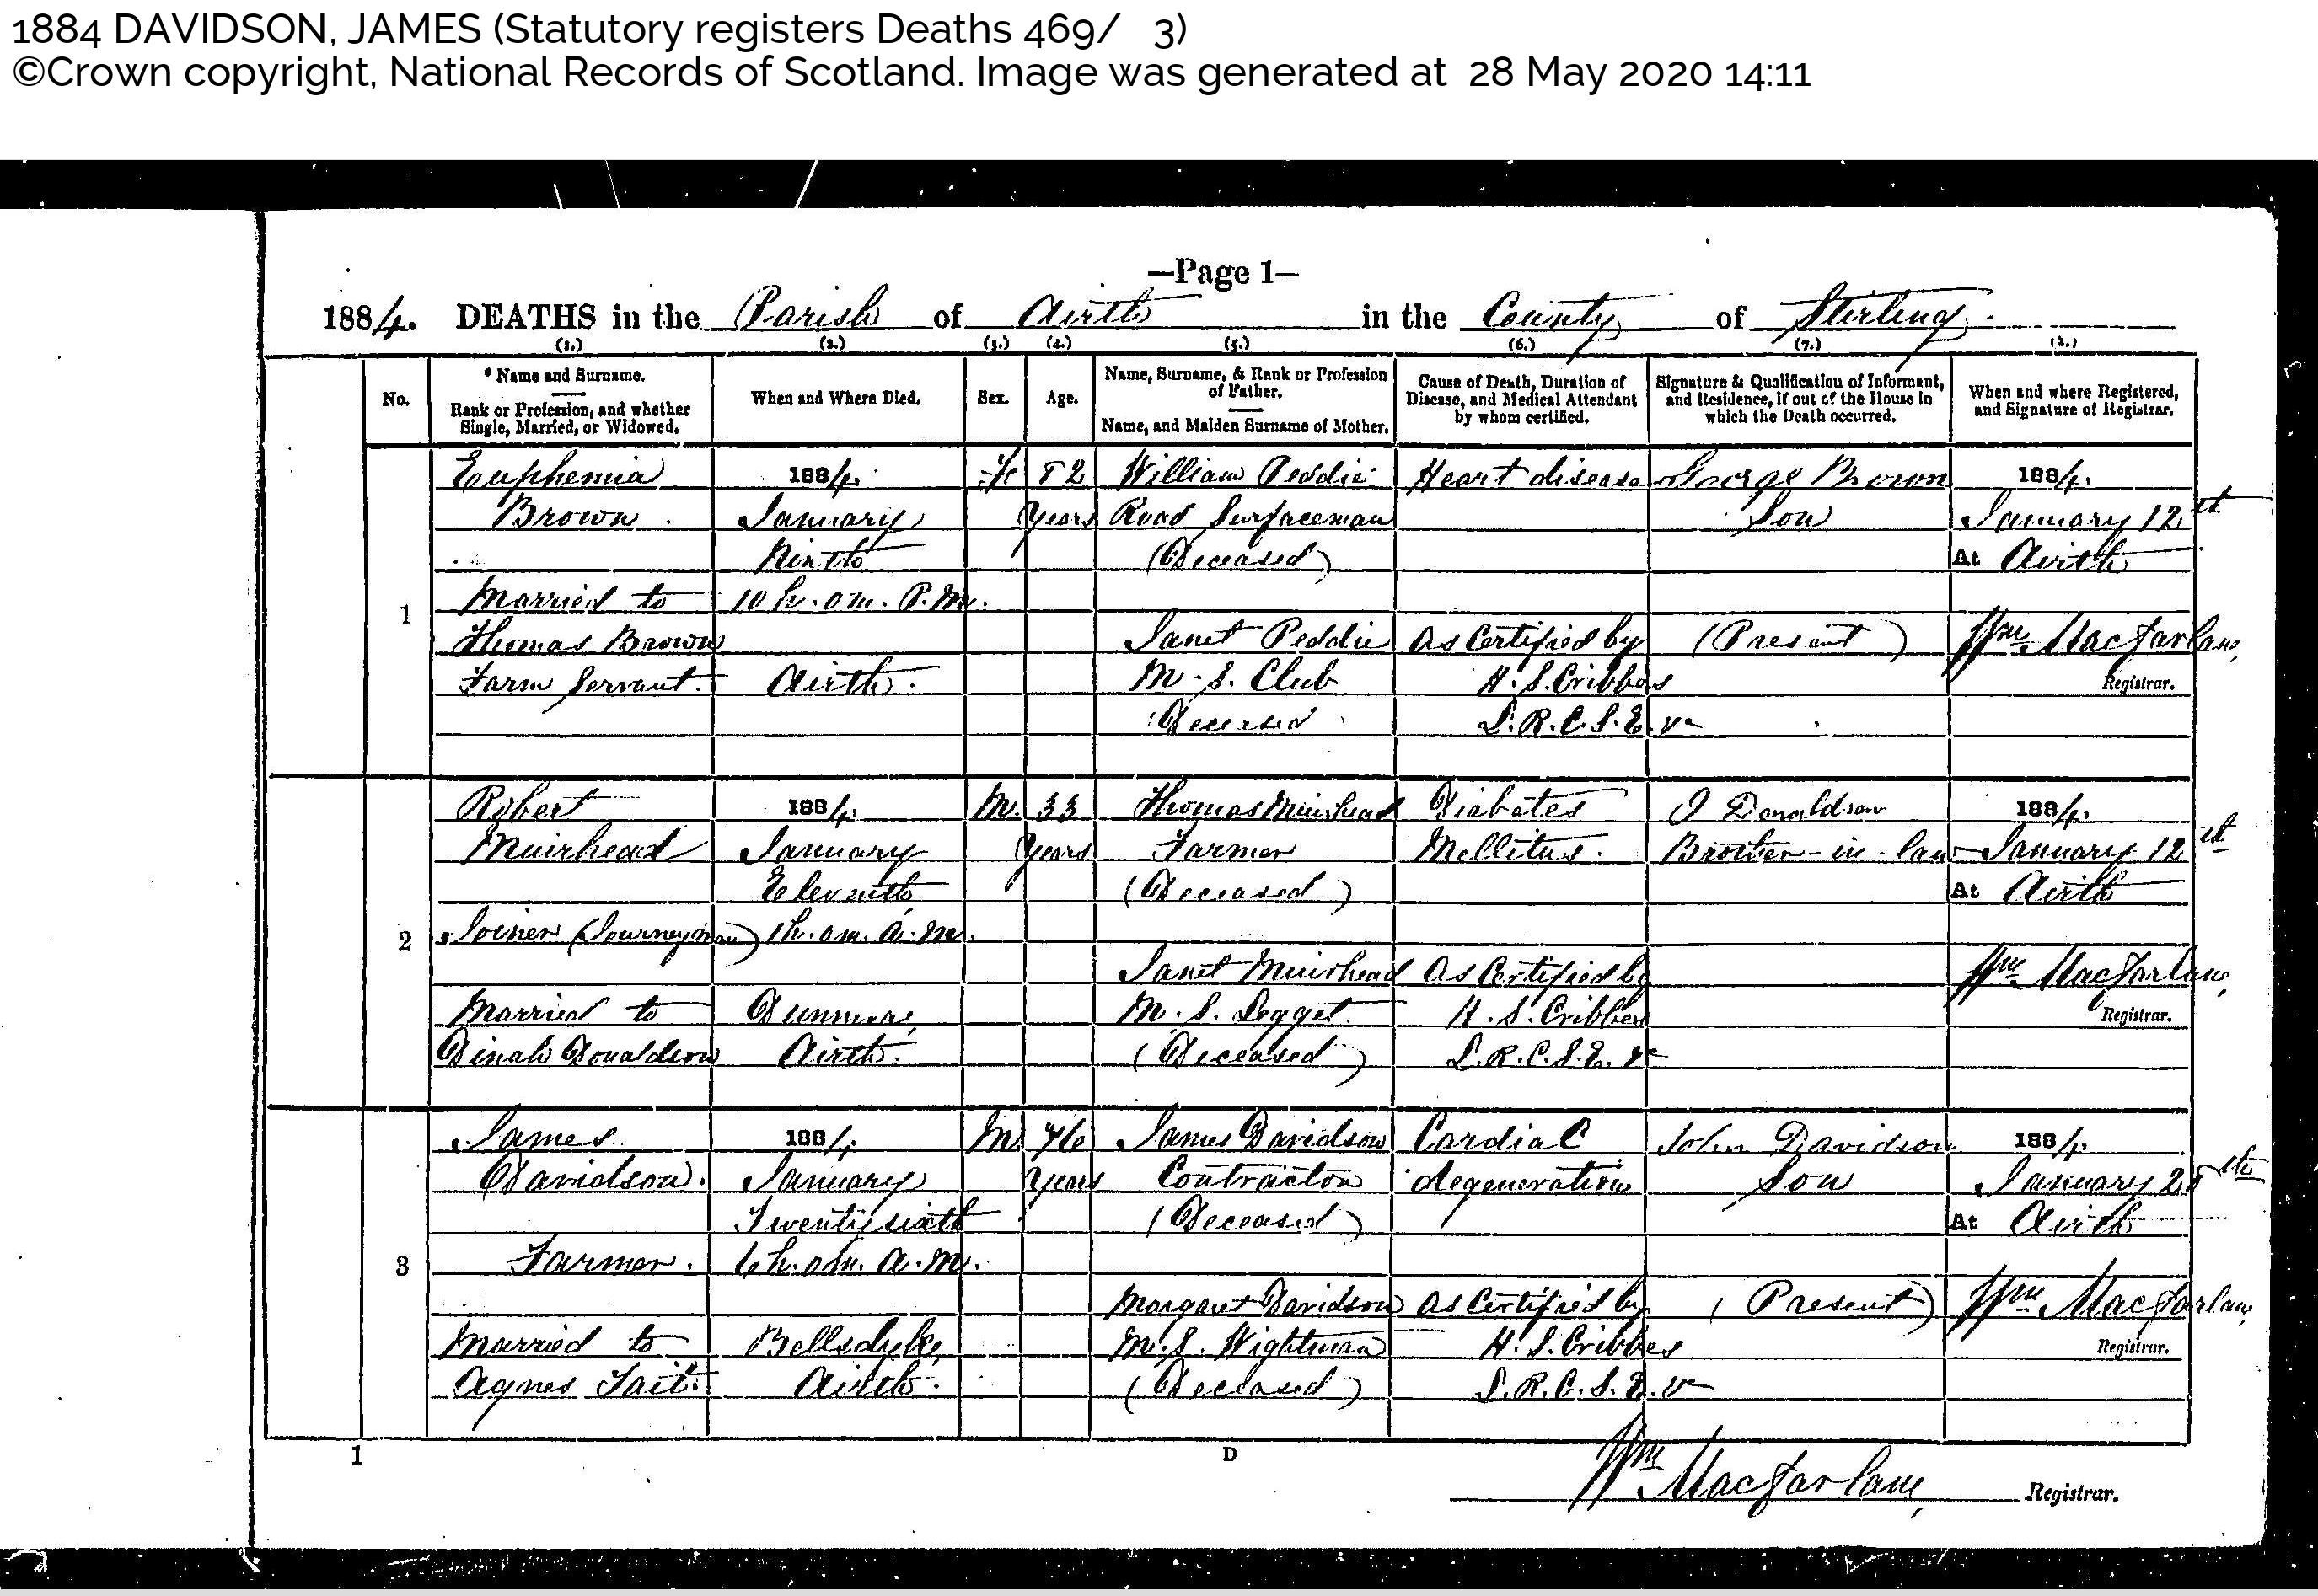 1884 DAVIDSON, JAMES (Statutory registers Deaths 469/ 3)
©Crown copyright, National Records of Scotland. Image was generated at 28 May 2020 14:11
—Page 1—
1884. DEATHS in the Parish of Airth in the County of Stirling.
(1.) (2.) (3.) (4.) (5.) (6.) (7.) (8.)
No.
* Name and Surname.
Rank or Profession, and whether
Single, Married, or Widowed.
When and Where Died.
Sex.
Age.
Name, Surname, & Rank or Profession
of Father.
Name, and Maiden Surname of Mother.
Cause of Death, Duration of
Disease, and Medical Attendant
by whom certified.
Signature & Qualification of Informant,
and Residence, if out of the House in
which the Death occurred.
When and where Registered,
and Signature of Registrar.
1
Euphemia
Brown.
Married to
Thomas Brown
Farm Servant.
1884.
January
Ninth
10 h. 0 m. P.M.
Airth.
F.
82
Years
William Peddie
Road Surfaceman
(Deceased)
Janet Peddie
M.S. Club
(Deceased)
Heart disease
As Certified by
H. S. Cribbes
L.R.C.S.E. &c
George Brown
Son
(Present)
1884.
January 12th
At Airth
Wm. MacFarlane,
Registrar.
2
Robert
Muirhead
Joiner (Journeyman)
Married to
Dinah Donaldson
1884.
January
Eleventh
1 h. 0 m. A.M.
Dunmore,
Airth.
M.
33
Years
Thomas Muirhead
Farmer
(Deceased)
Janet Muirhead
M.S. Legget
(Deceased)
Diabetes
Mellitus.
As Certified by
H. S. Cribbes
L.R.C.S.E. &c
Donaldson
Brother-in-law
1884.
January 12th
At Airth
Wm. MacFarlane,
Registrar.
3
James
Davidson.
Farmer.
Married to
Agnes Tait.
1884.
January
Twenty sixth
6 h. 0 m. A.M.
Bellsdyke,
Airth.
M.
76
Years
James Davidson
Contractor
(Deceased)
Margaret Davidson
M.S. Wightman
(Deceased)
Cardiac
degeneration
As Certified by
H. S. Cribbes
L.R.C.S.E. &c
John Davidson
Son
(Present)
1884.
January
At Airth
Wm. MacFarlane,
Registrar.
1
D
Wm. MacFarlane, Registrar.